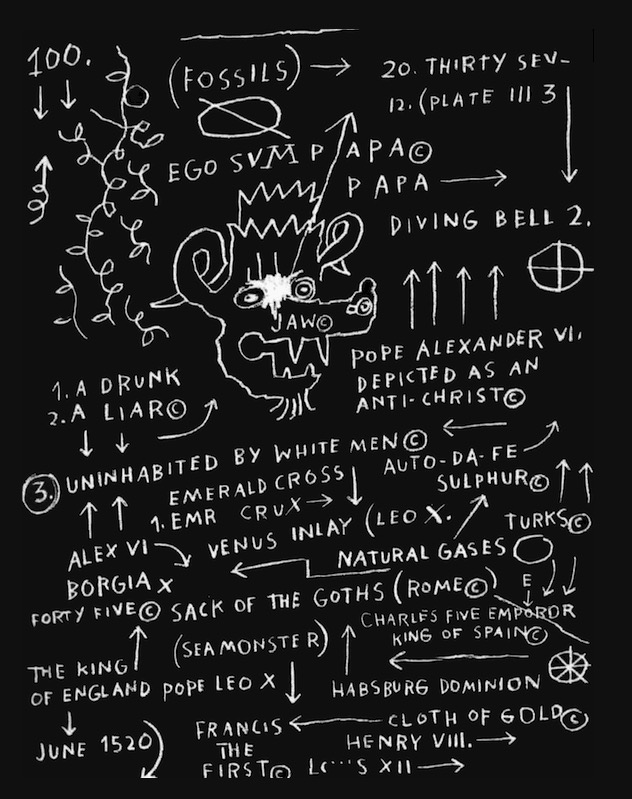 100.
(FOSSILS) → 20. THIRTY SEV-
12. (PLATE III 3
EGO SVM PAPA©
PAPA →
DIVING BELL 2.
JAW©
POPE ALEXANDER VI.
DEPICTED AS AN
ANTI-CHRIST©
1. A DRUNK
2. A LIAR©
3. UNINHABITED BY WHITE MEN© ←
AUTO-DA-FE
SULPHUR©
EMERALD CROSS
1. EMR CRUX →
VENUS INLAY (LEO X.
TURKS©
ALEX VI
NATURAL GASES
BORGIA X
FORTY FIVE© SACK OF THE GOTHS (ROME©)
E
CHARLES FIVE EMPOROR
KING OF SPAIN©
(SEA MONSTER)
THE KING
OF ENGLAND POPE LEO X
HABSBURG DOMINION
JUNE 1520
FRANCIS ← CLOTH OF GOLD©
THE HENRY VIII. →
FIRST© XII →